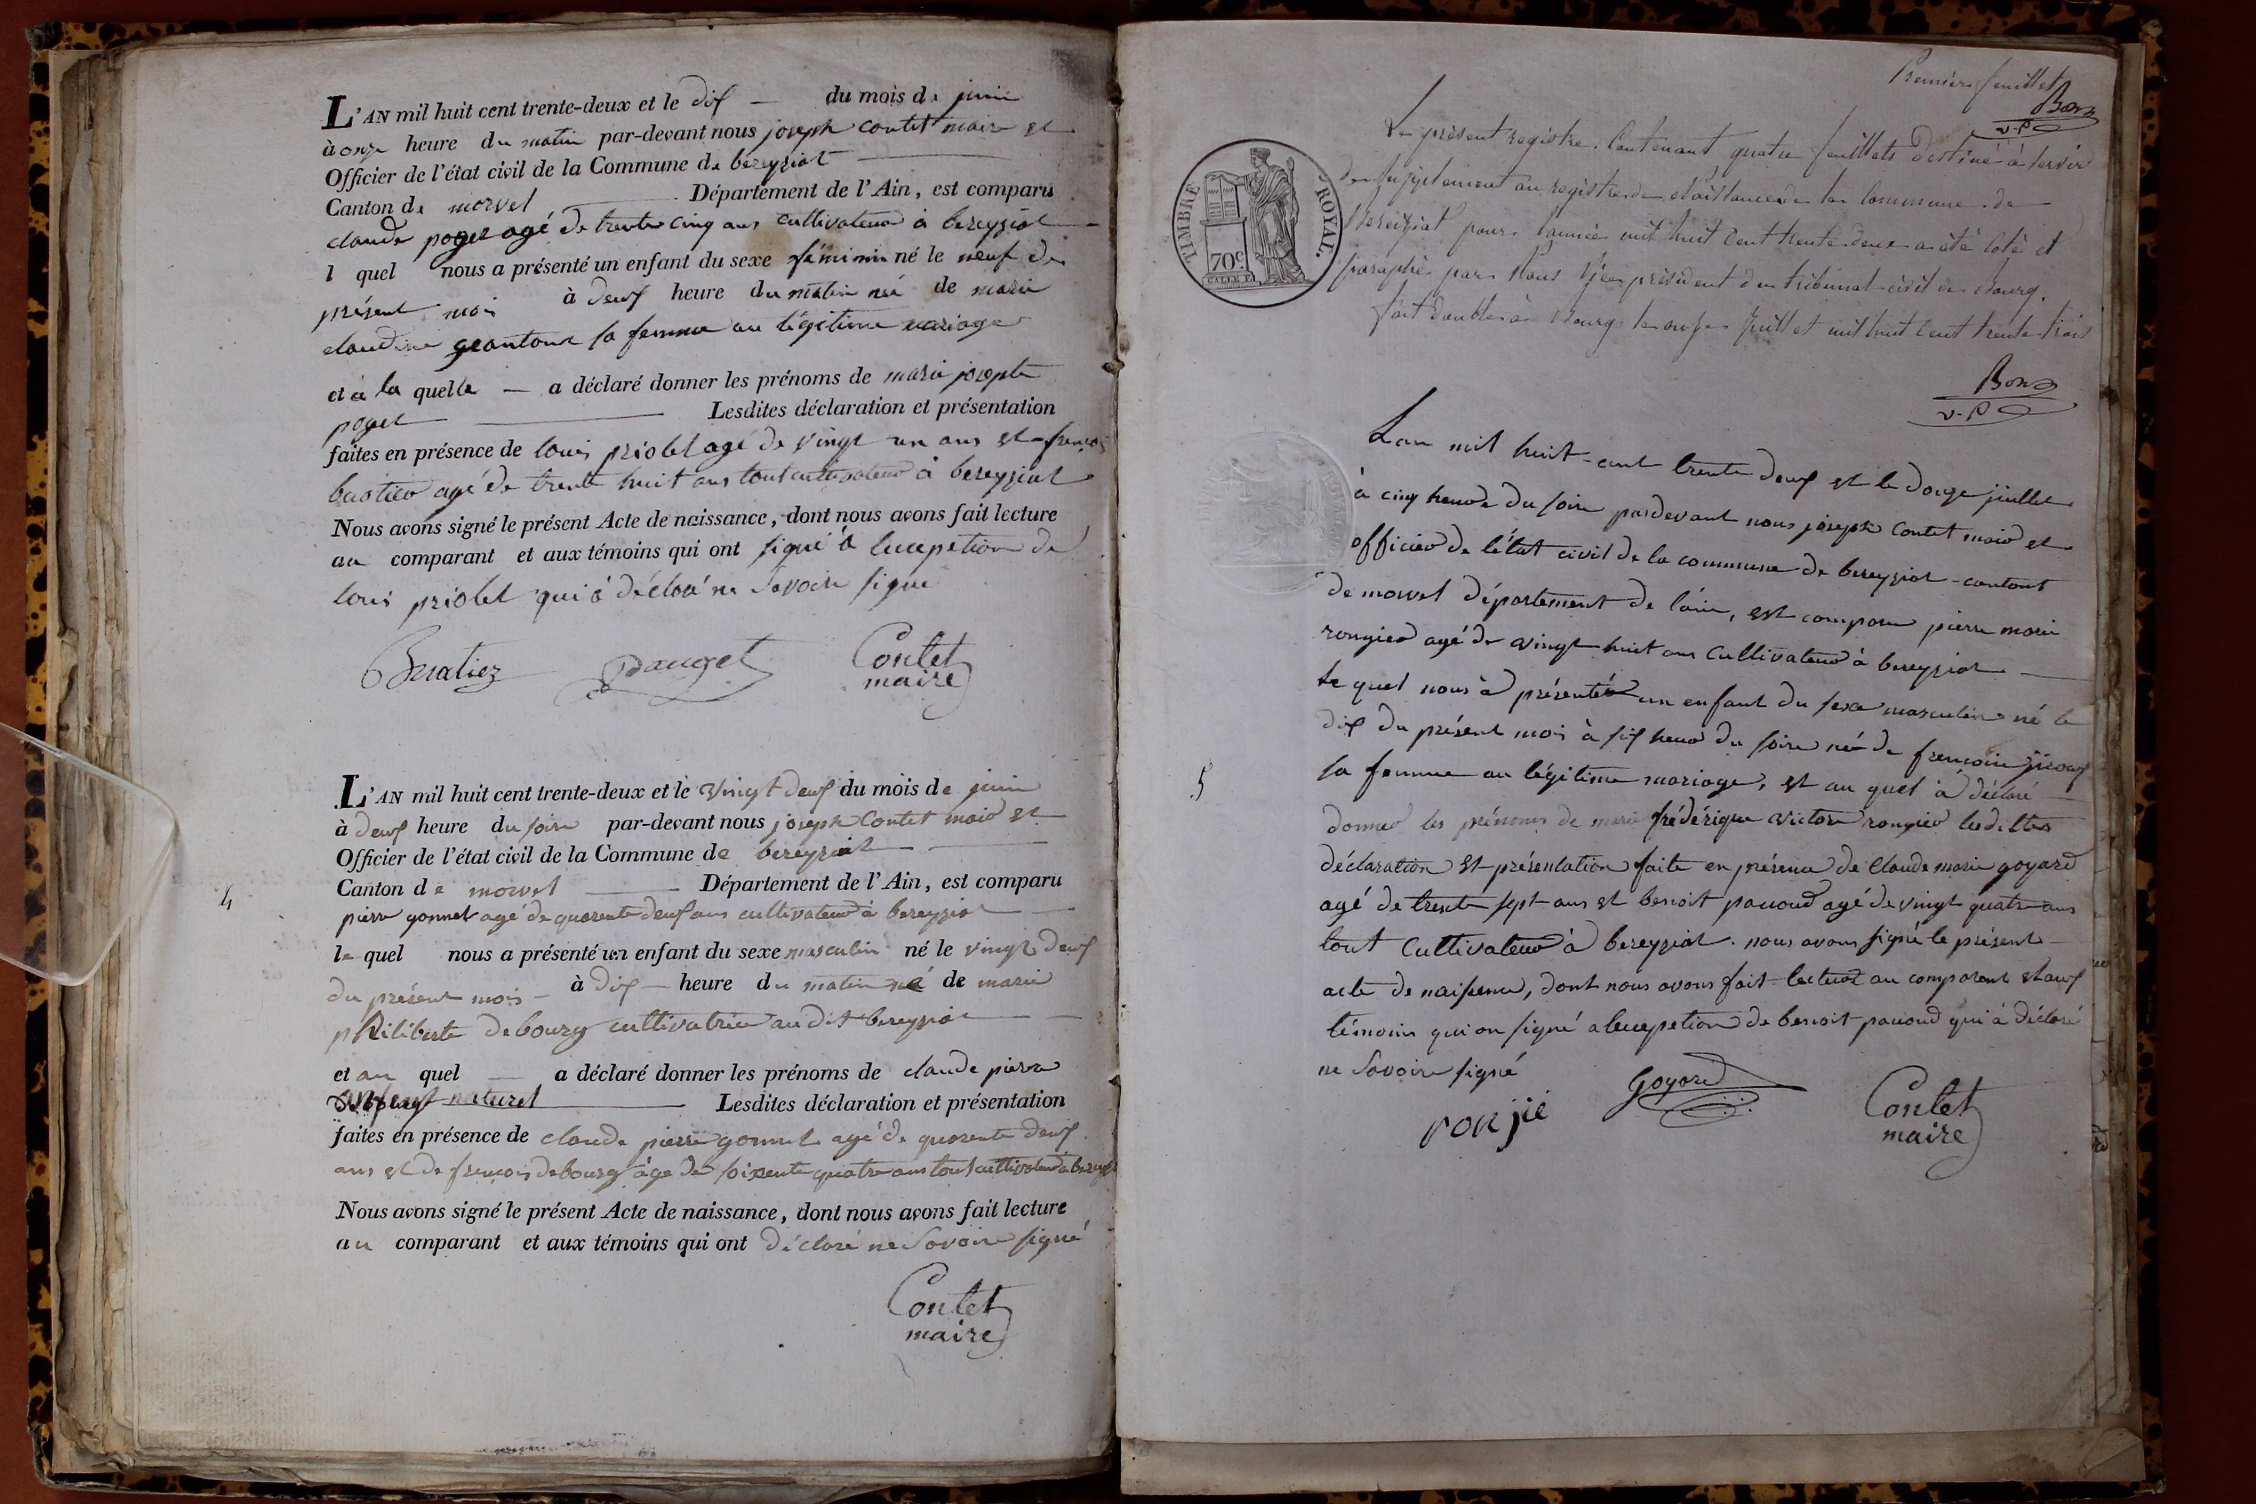 L'AN mil huit cent trente-deux et le dix — du mois de juin
à onze heure du matin par-devant nous joseph contet maire et
Officier de l'état civil de la Commune de bereyziat
Canton de morvel — Département de l'Ain, est comparu
claude poget agé de trente cinq ans cultivateur à bereyziat
l quel nous a présenté un enfant du sexe féminin né le neuf du
présent mois à deux heure du matin né de marie
claudine sa femme au légitime mariage
et à la quelle — a déclaré donner les prénoms de marie josepte
poget — Lesdites déclaration et présentation
faites en présence de louis priolet agé de vingt un ans et françois
agé de trente huit ans tout cultivateur à bereyziat
Nous avons signé le présent Acte de naissance, dont nous avons fait lecture
au comparant et aux témoins qui ont signé à lucepetion de
louis priolet qui à déclaré ne savoire signe
Pauget
Contet
maire
4
L'AN mil huit cent trente-deux et le vingt deux du mois de juin
à deux heure du soire par-devant nous joseph Contet maire et
Officier de l'état civil de la Commune de bereyziat
Canton de morvel — Département de l'Ain, est comparu
pierre gonnet agé de quarente deux ans cultivateur à bereyziat
le quel nous a présenté un enfant du sexe masculin né le vingt deux
du présent mois — à dix — heure du matin né de marie
philiberte debourg cultivatrice au dit bereyziat
et au quel — a déclaré donner les prénoms de claude pierre
naturel — Lesdites déclaration et présentation
faites en présence de claude pierre gonnet agé de quarente deux
ans et de françois debourg âge de soixente quatre ans tout cultivateur à
Nous avons signé le présent Acte de naissance, dont nous avons fait lecture
au comparant et aux témoins qui ont déclaré ne savoire signé
Contet
maire
Premier feuillet
Bon
v.P
TIMBRE ROYAL.
70c
Le présent registre, Contenant quatre feuillets destiné à servir
de supplement au registre de naissance de la commune de
Bereiziat pour l'année mil huit cent trente deux a été coté et
paraphé par Nous Vice président du tribunal civil de Bourg.
fait double à Bourg le onze juillet mil huit cent trente trois
Bon
v.P
5
Lan mil huit-cent trente deux et le douze juillet
à cinq heure du soire pardevant nous joseph Contet maire et
officier de létat civil de la commune de bereyziat cantont
de morvel département de láin, est comparu pierre marie
rongier agé de vingt huit ans Cultivateur à bereyziat
le quel nous à présenté un enfant du sexe masculin né le
dix du présent mois à six heure du soire né de
sa femme au légitime mariage, et au quel à déclaré
donner les prénoms de marie frédérique victor rongier lesdittes
déclaration et présentation faite en présence de Claude marie goyard
agé de trente sept ans et benoit pauoud agé de vingt quatre ans
tout Cultivateur à bereyziat. nous avons signé le présent
acte de naissence, dont nous avons fait lecture au comparent et aux
témoins qui on signé a lucepetion de benoit pauoud qui à déclaré
ne savoire signé
ronjie
Goyard
Contet
maire